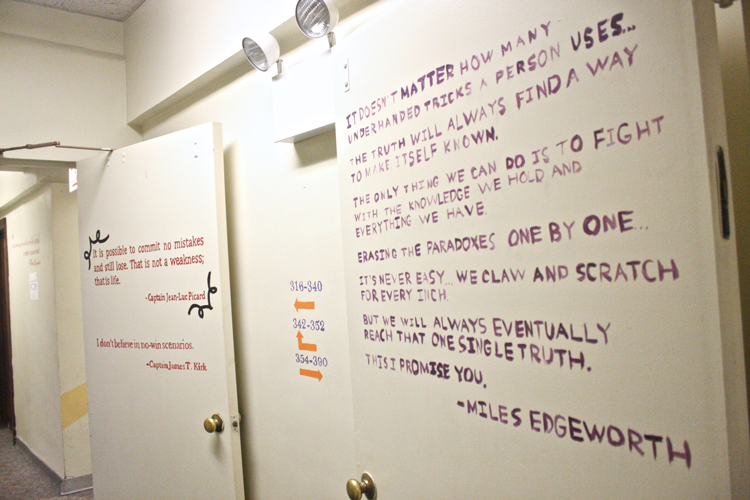 It is possible to commit no mistakes
and still lose. That is not a weakness;
that is life.
-Captain Jean-Luc Picard
I don't believe in no-win scenarios.
-Captain James T. Kirk
316-340
342-352
354-390
IT DOESN'T MATTER HOW MANY
UNDERHANDED TRICKS A PERSON USES...
THE TRUTH WILL ALWAYS FIND A WAY
TO MAKE ITSELF KNOWN.
THE ONLY THING WE CAN DO IS TO FIGHT
WITH THE KNOWLEDGE WE HOLD AND
EVERYTHING WE HAVE.
ERASING THE PARADOXES ONE BY ONE...
IT'S NEVER EASY... WE CLAW AND SCRATCH
FOR EVERY INCH.
BUT WE WILL ALWAYS EVENTUALLY
REACH THAT ONE SINGLE TRUTH.
THIS I PROMISE YOU.
-MILES EDGEWORTH